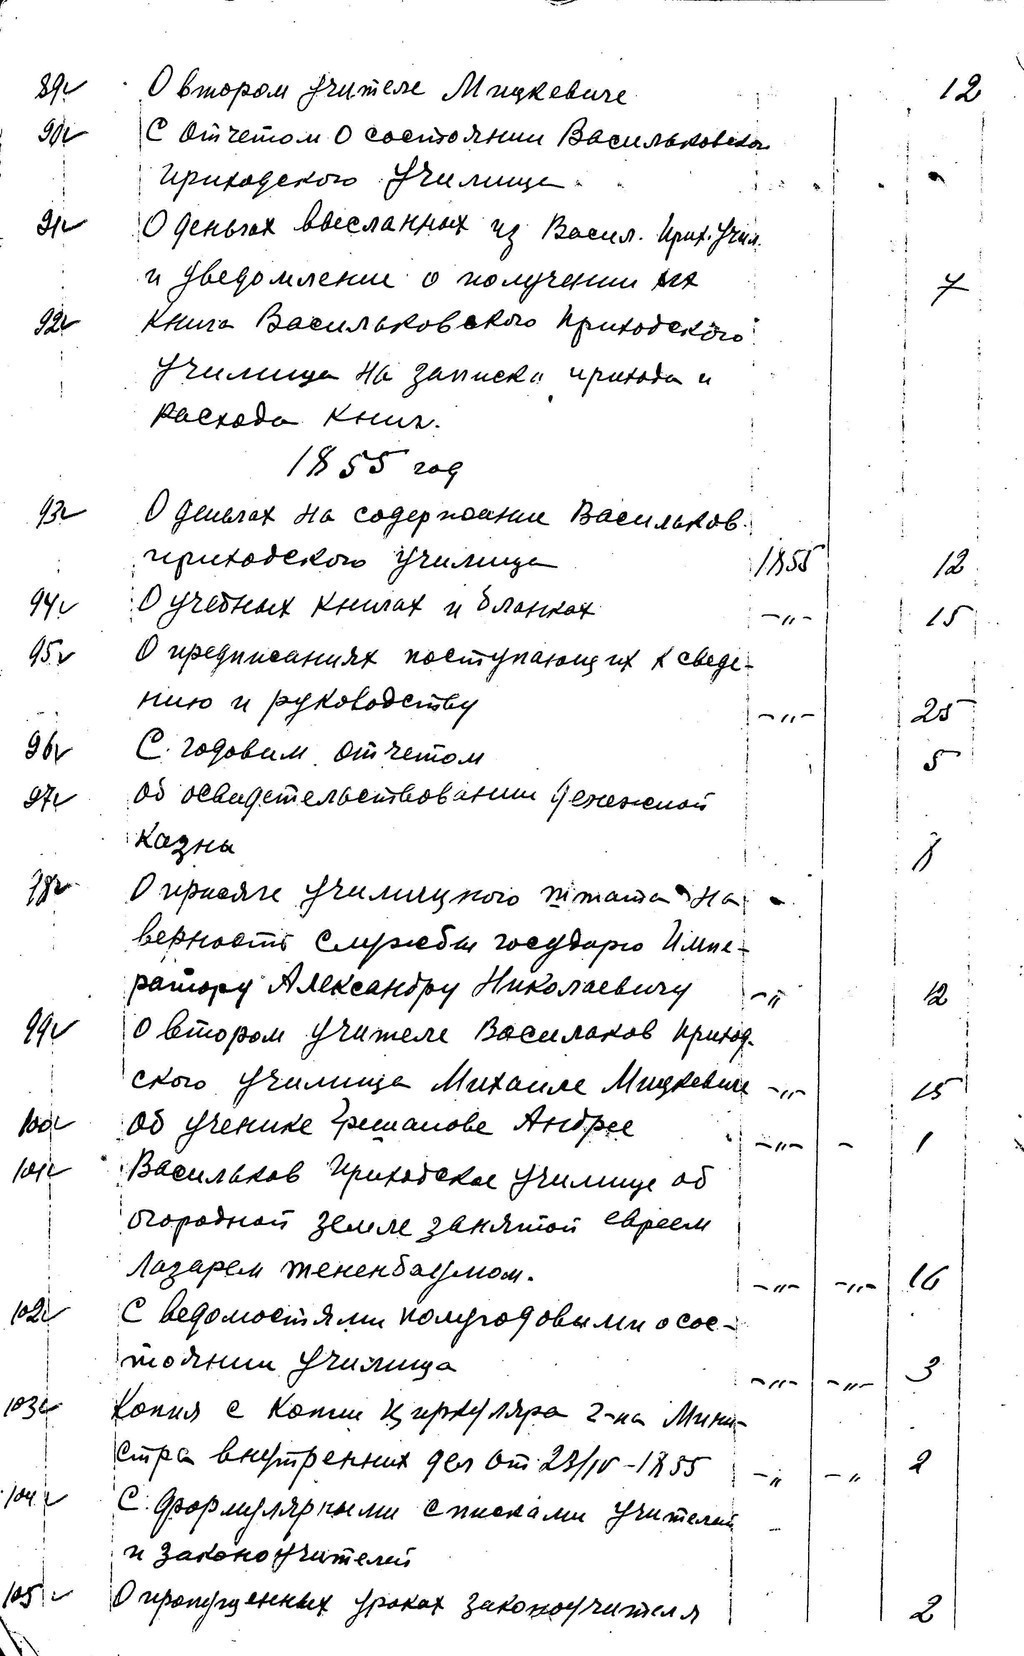 89 О втором учителе Мицкевиче 12
90 С отчетом о состоянии Васильковского
приходского училища
91 О деньгах высланных из Васил. Прих. Учил.
и уведомление о получении их 7
92 Книга Васильковского приходского
училища на записка прихода и
расхода книг.
1855 год
93 О деньгах на содержание Васильков.
приходского училища 1855 12
94 О учебных книгах и бланках -"- 15
95 О предписаниях поступающих к сведе-
нию и руководству -"- 25
96 С годовим отчетом 5
97 Об освидетельствовании денежной
казны 8
98 О присяге училищного штата на
верность службы государю Импе-
ратору Александру Николаевичу -"- 12
99 О втором учителе Васильков приход-
ского училища Михаиле Мицкевиче -"- 15
100 Об ученике Андрее -"- - 1
101 Васильков приходское училище об
огородной земле занятой евреем
Лазарем Тененбаумом. -"- -"- 16
102 С ведомостями полугодовыми о сос-
тоянии училища -"- -"- 3
103 Копия с копии циркуляра г-на Мини-
стра внутренних дел от 23/IV-1855 -"- -"- 2
104 С формулярными списками учителей
и законоучителей
105 О пропущенных уроках законоучителя 2